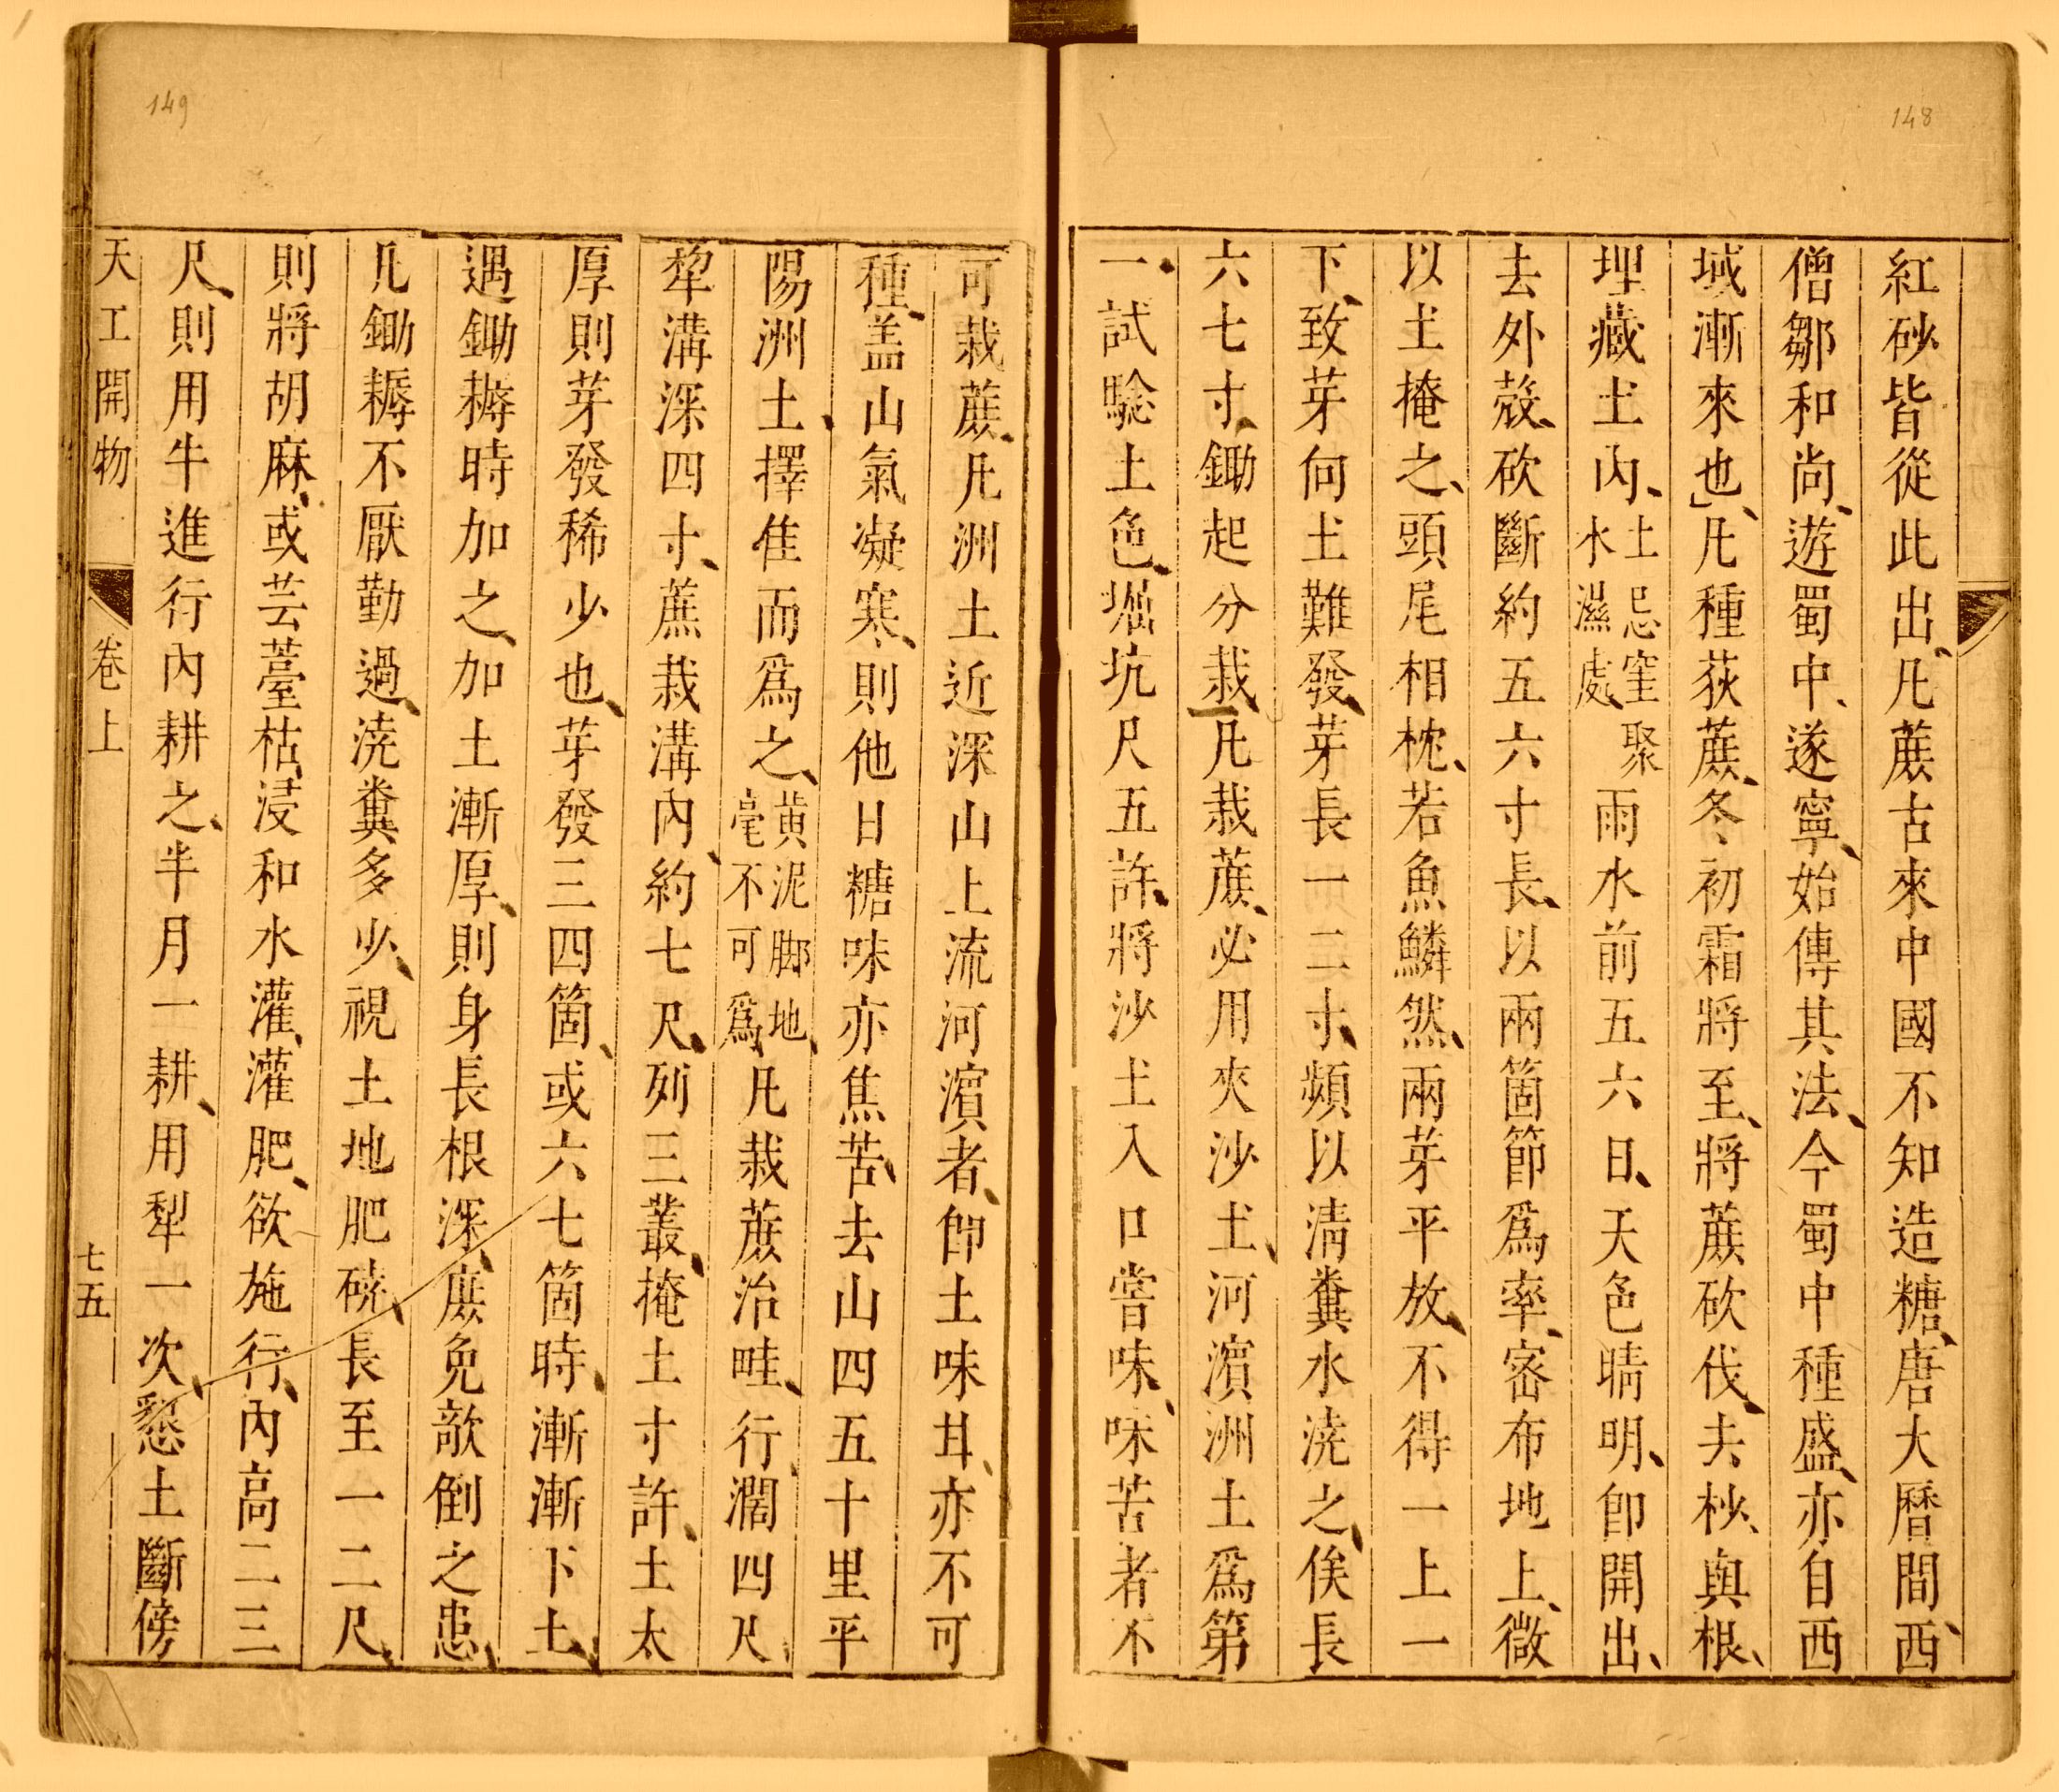 148
紅砂皆從此出、凡蔗古來中國不知造糖、唐大曆間、西
僧鄒和尚、遊蜀中、遂寧、始傳其法、今蜀中種盛、亦自西
域漸來也、凡種荻蔗、冬初霜將至、將蔗砍伐、去杪、與根、
埋藏土內、土忌窪聚水濕處雨水前五六日、天色晴明、卽開出、
去外殼、砍斷約五六寸長、以兩箇節爲率、密布地上、微
以土掩之、頭尾相枕、若魚鱗然、兩芽平放、不得一上一
下、致芽向土難發、芽長一二寸、頻以清糞水澆之、俟長
六七寸、鋤起分栽、凡栽蔗、必用夾沙土、河濱洲土爲第
一、試驗土色、堀坑尺五許、將沙土入口嘗味、味苦者不
149
可栽蔗、凡洲土近深山上流河濱者、卽土味甘、亦不可
種、盖山氣凝寒、則他日糖味亦焦苦、去山四五十里平
陽洲土、擇隹而爲之、黃泥脚地毫不可爲、凡栽蔗治畦、行濶四尺、
犂溝深四寸、蔗栽溝內、約七尺、列三叢、掩土寸許、土太
厚則芽發稀少也、芽發三四箇、或六七箇時、漸漸下土、
遇鋤耨時加之、加土漸厚、則身長根深、庶免欹倒之患、
凡鋤耨不厭勤過、澆糞多少、視土地肥磽、長至一二尺、
則將胡麻、或芸薹枯、浸和水灌、灌肥、欲施行、內高二三
尺、則用牛進行內耕之、半月一耕、用犁一次、懇土斷傍
天工開物 卷上 七五